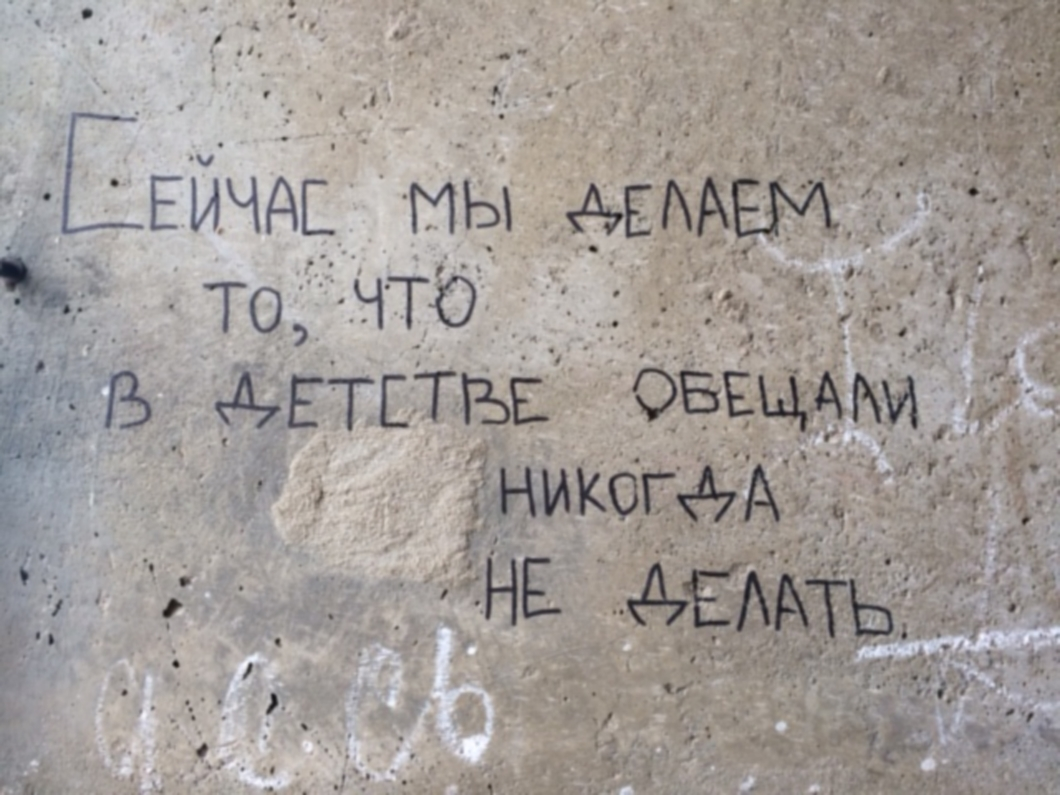 Сейчас мы делаем
то, что
в детстве обещали
никогда
не делать